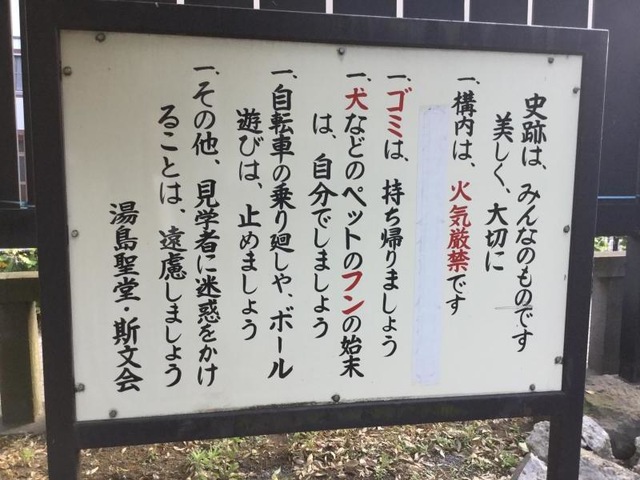 史跡は、みんなのものです
美しく、大切に
一、構内は、火気厳禁です
一、ゴミは、持ち帰りましょう
一、犬などのペットのフンの始末
は、自分でしましょう
一、自転車の乗り廻しや、ボール
遊びは、止めましょう
一、その他、見学者に迷惑をかけ
ることは、遠慮しましょう
湯島聖堂・斯文会